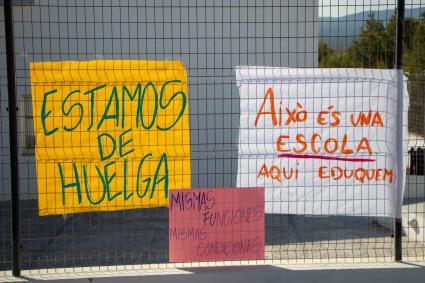 ESTAMOS
DE
HUELGA
Això és una
ESCOLA
AQUÍ EDUQUEM
MISMAS
FUNCIONES
MISMAS
CONDICIONES